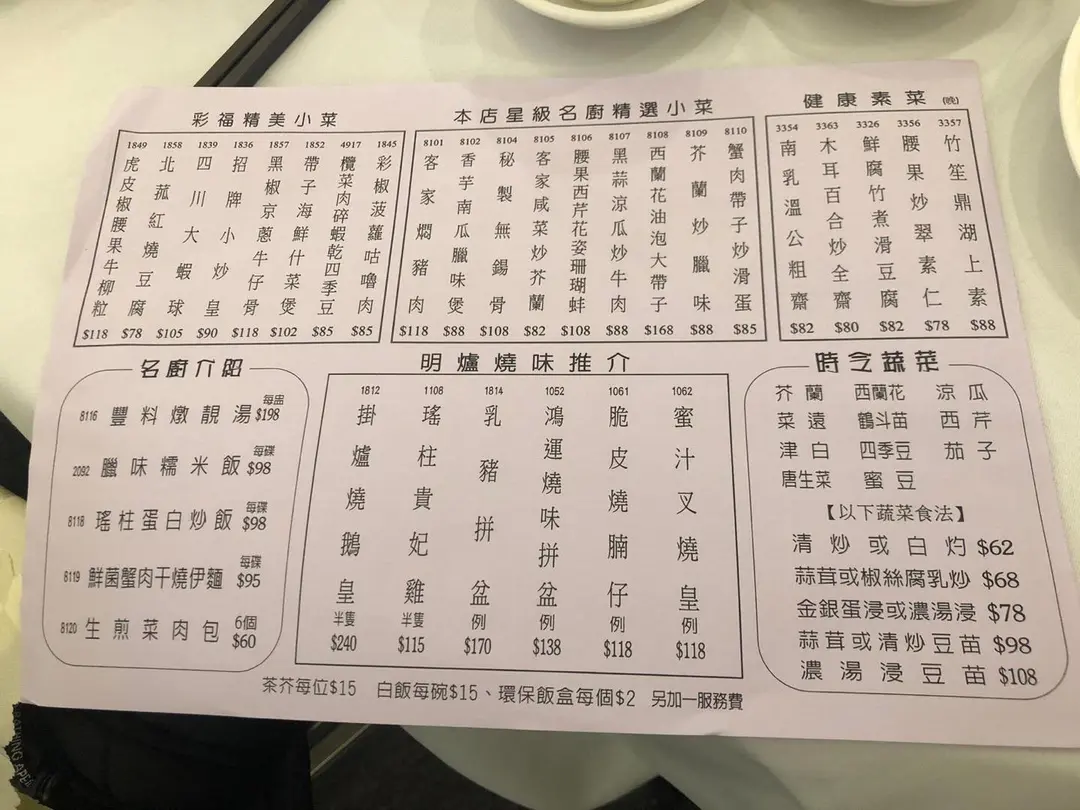 彩福精美小菜
1849 虎皮椒腰果牛柳粒 $118
1858 北菰紅燒豆腐 $78
1839 四川大蝦球 $105
1836 招牌小炒皇 $90
1857 黑椒京蔥牛仔骨 $118
1852 帶子海鮮什菜煲 $102
4917 欖菜肉碎蝦乾四季豆 $85
1845 彩椒菠蘿咕嚕肉 $85
本店星級名廚精選小菜
8101 客家燜豬肉 $118
8102 香芋南瓜臘味煲 $88
8104 秘製無錫骨 $108
8105 客家咸菜炒芥蘭 $82
8106 腰果西芹花姿珊瑚蚌 $108
8107 黑蒜涼瓜炒牛肉 $88
8108 西蘭花油泡大帶子 $168
8109 芥蘭炒臘味 $88
8110 蟹肉帶子炒滑蛋 $85
健康素菜 (晚)
3354 南乳溫公粗齋 $82
3363 木耳百合炒全齋 $80
3326 鮮腐竹煮滑豆腐 $82
3356 腰果炒翠素仁 $78
3357 竹笙鼎湖上素 $88
名廚介紹
8116 豐料燉靚湯 每盅 $198
2092 臘味糯米飯 每碟 $98
8118 瑤柱蛋白炒飯 每碟 $98
8119 鮮菌蟹肉干燒伊麵 每碟 $95
8120 生煎菜肉包 6個 $60
明爐燒味推介
1812 掛爐燒鵝皇 半隻 $240
1108 瑤柱貴妃雞 半隻 $115
1814 乳豬拼盆 例 $170
1052 鴻運燒味拼盆 例 $138
1061 脆皮燒腩仔 例 $118
1062 蜜汁叉燒皇 例 $118
時令蔬菜
芥蘭 西蘭花 涼瓜
菜遠 鶴斗苗 西芹
津白 四季豆 茄子
唐生菜 蜜豆
【以下蔬菜食法】
清炒或白灼 $62
蒜茸或椒絲腐乳炒 $68
金銀蛋浸或濃湯浸 $78
蒜茸或清炒豆苗 $98
濃湯浸豆苗 $108
茶芥每位$15 白飯每碗$15、環保飯盒每個$2 另加一服務費